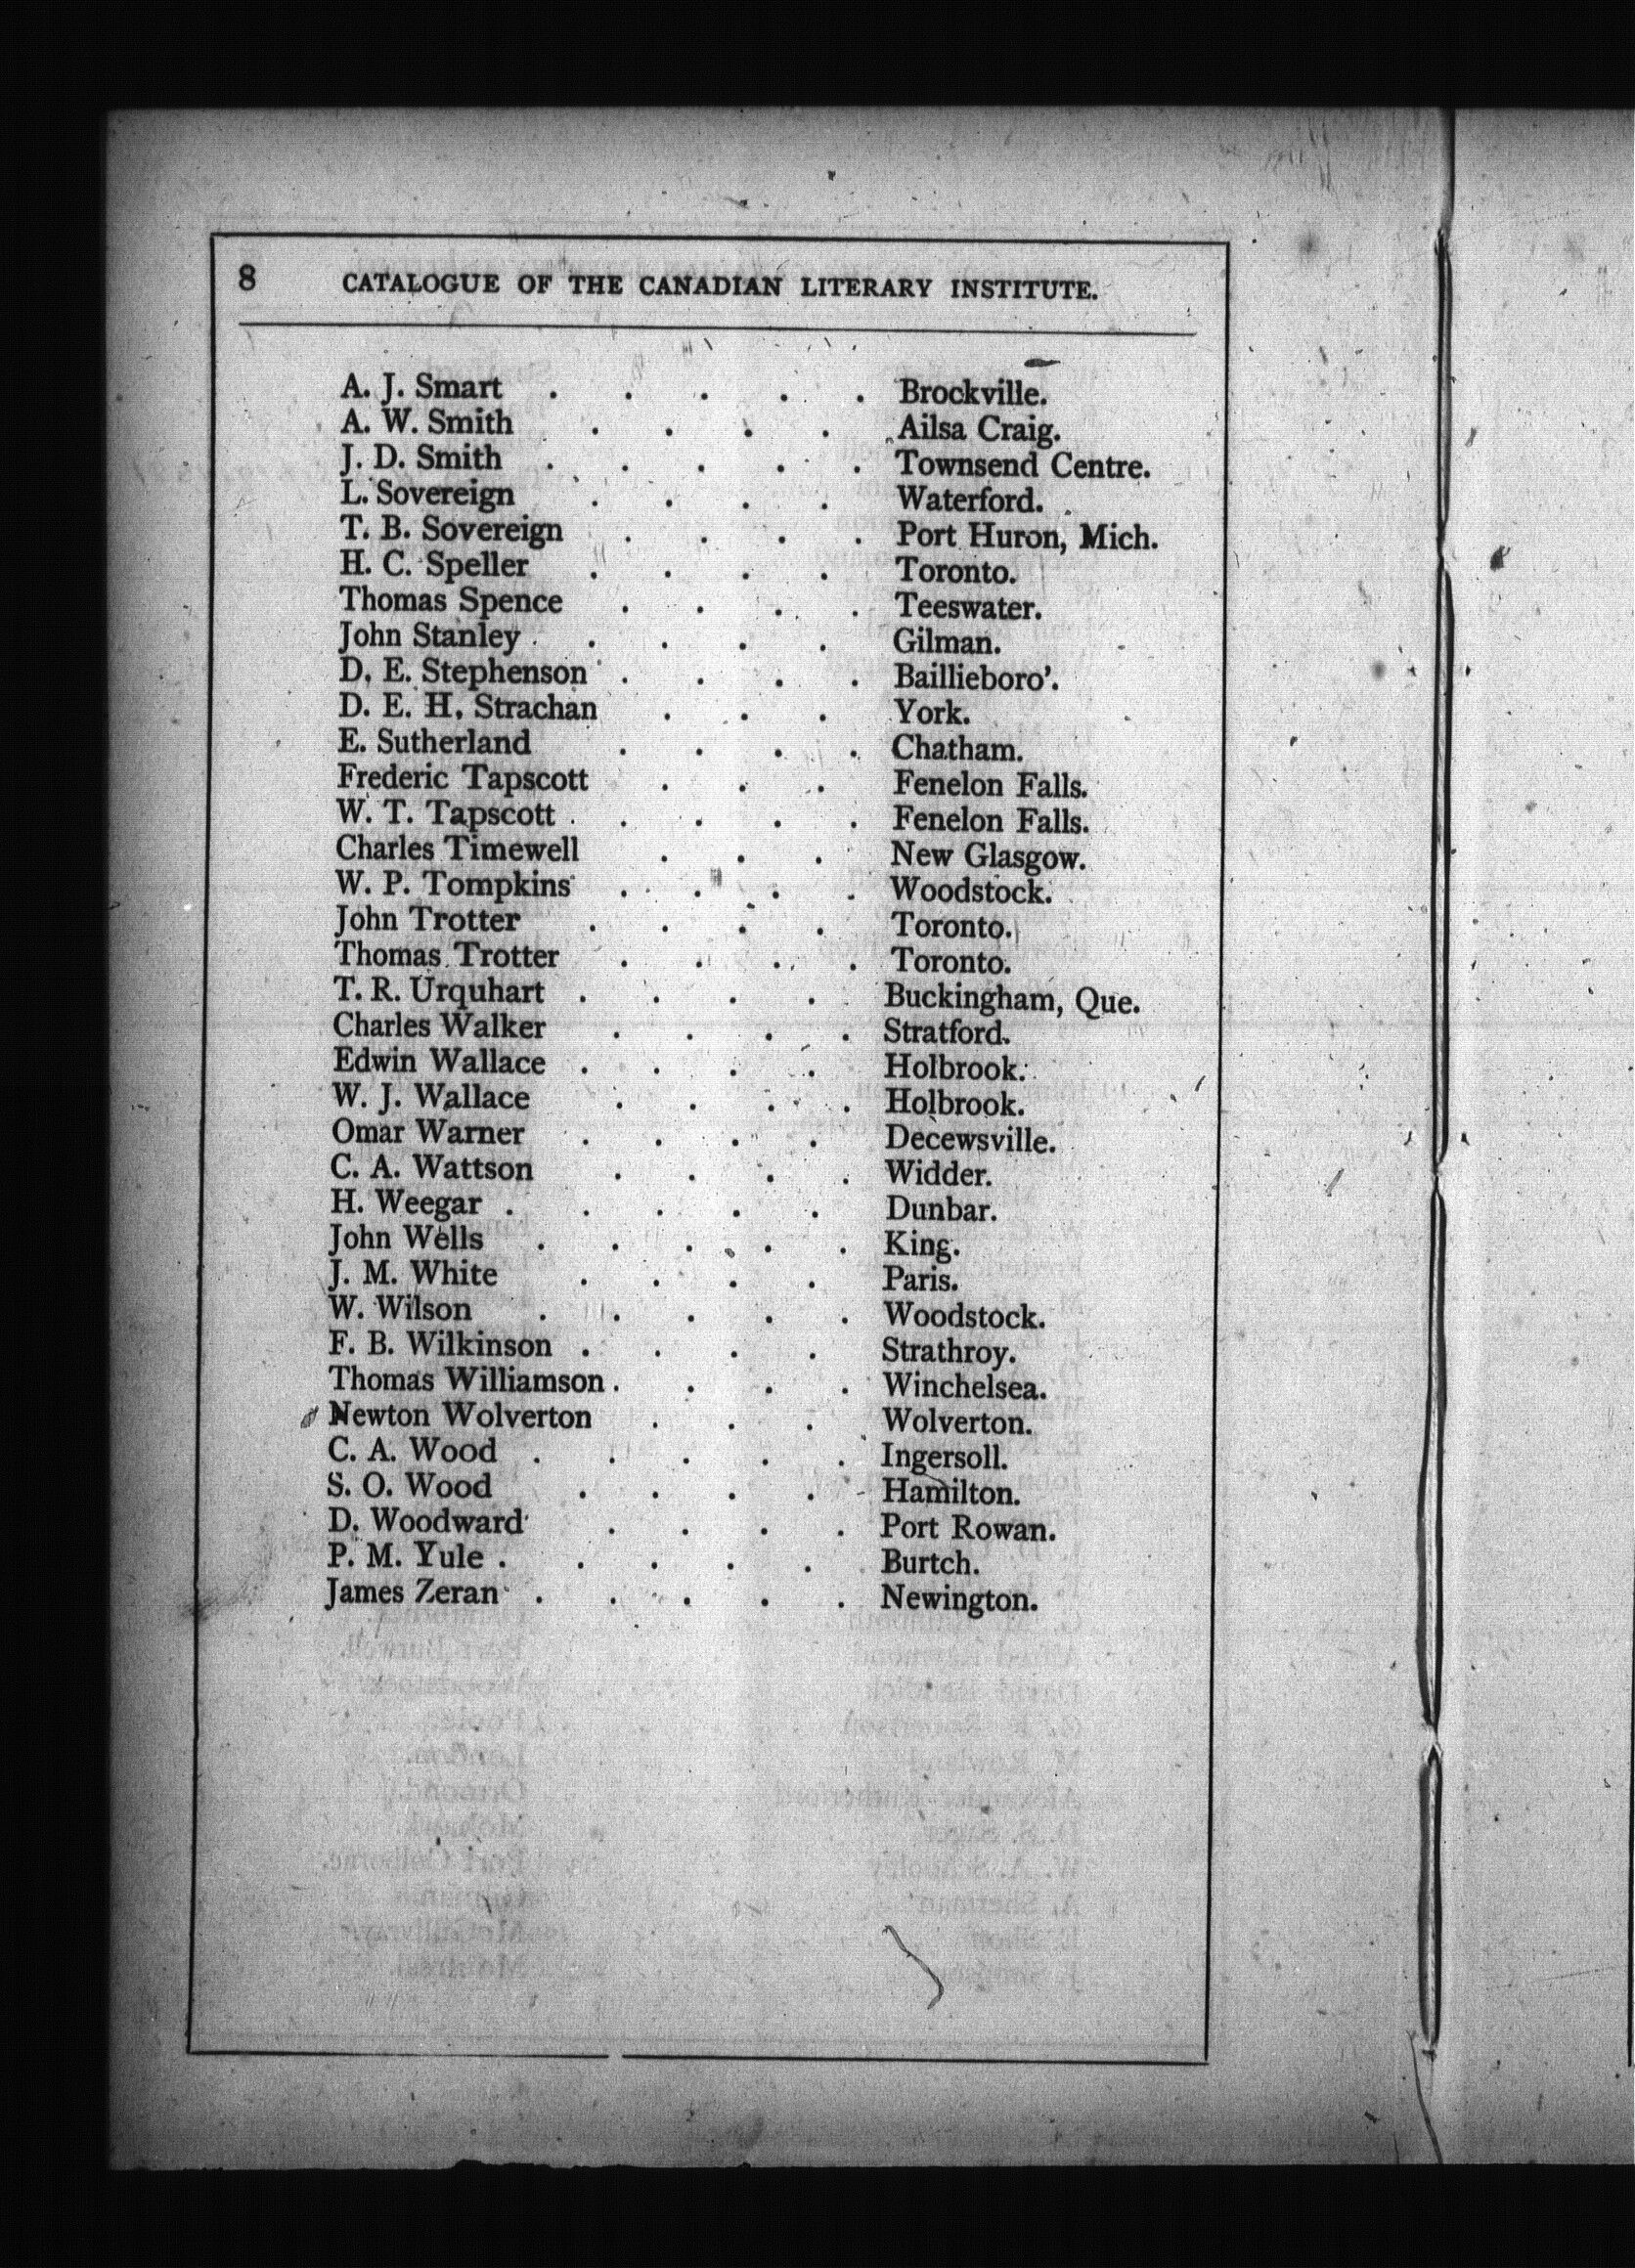 8 CATALOGUE OF THE CANADIAN LITERARY INSTITUTE.
A. J. Smart . . . . . Brockville.
A. W. Smith . . . . Ailsa Craig.
J. D. Smith . . . . . Townsend Centre.
L. Sovereign . . . . Waterford.
T. B. Sovereign . . . . Port Huron, Mich.
H. C. Speller . . . . Toronto.
Thomas Spence . . . . Teeswater.
John Stanley . . . . Gilman.
D. E. Stephenson . . . . Baillieboro'.
D. E. H. Strachan . . . York.
E. Sutherland . . . . Chatham.
Frederic Tapscott . . . Fenelon Falls.
W. T. Tapscott . . . . . Fenelon Falls.
Charles Timewell . . . New Glasgow.
W. P. Tompkins . . . . Woodstock.
John Trotter . . . . Toronto.
Thomas Trotter . . . . Toronto.
T. R. Urquhart . . . . Buckingham, Que.
Charles Walker . . . . Stratford.
Edwin Wallace . . . . Holbrook.
W. J. Wallace . . . . Holbrook.
Omar Warner . . . . Decewsville.
C. A. Wattson . . . . Widder.
H. Weegar . . . . . Dunbar.
John Wells . . . . . King.
J. M. White . . . . Paris.
W. Wilson . . . . . Woodstock.
F. B. Wilkinson . . . . Strathroy.
Thomas Williamson . . . . Winchelsea.
Newton Wolverton . . . Wolverton.
C. A. Wood . . . . . Ingersoll.
S. O. Wood . . . . Hamilton.
D. Woodward . . . . Port Rowan.
P. M. Yule . . . . . Burtch.
James Zeran . . . . . Newington.